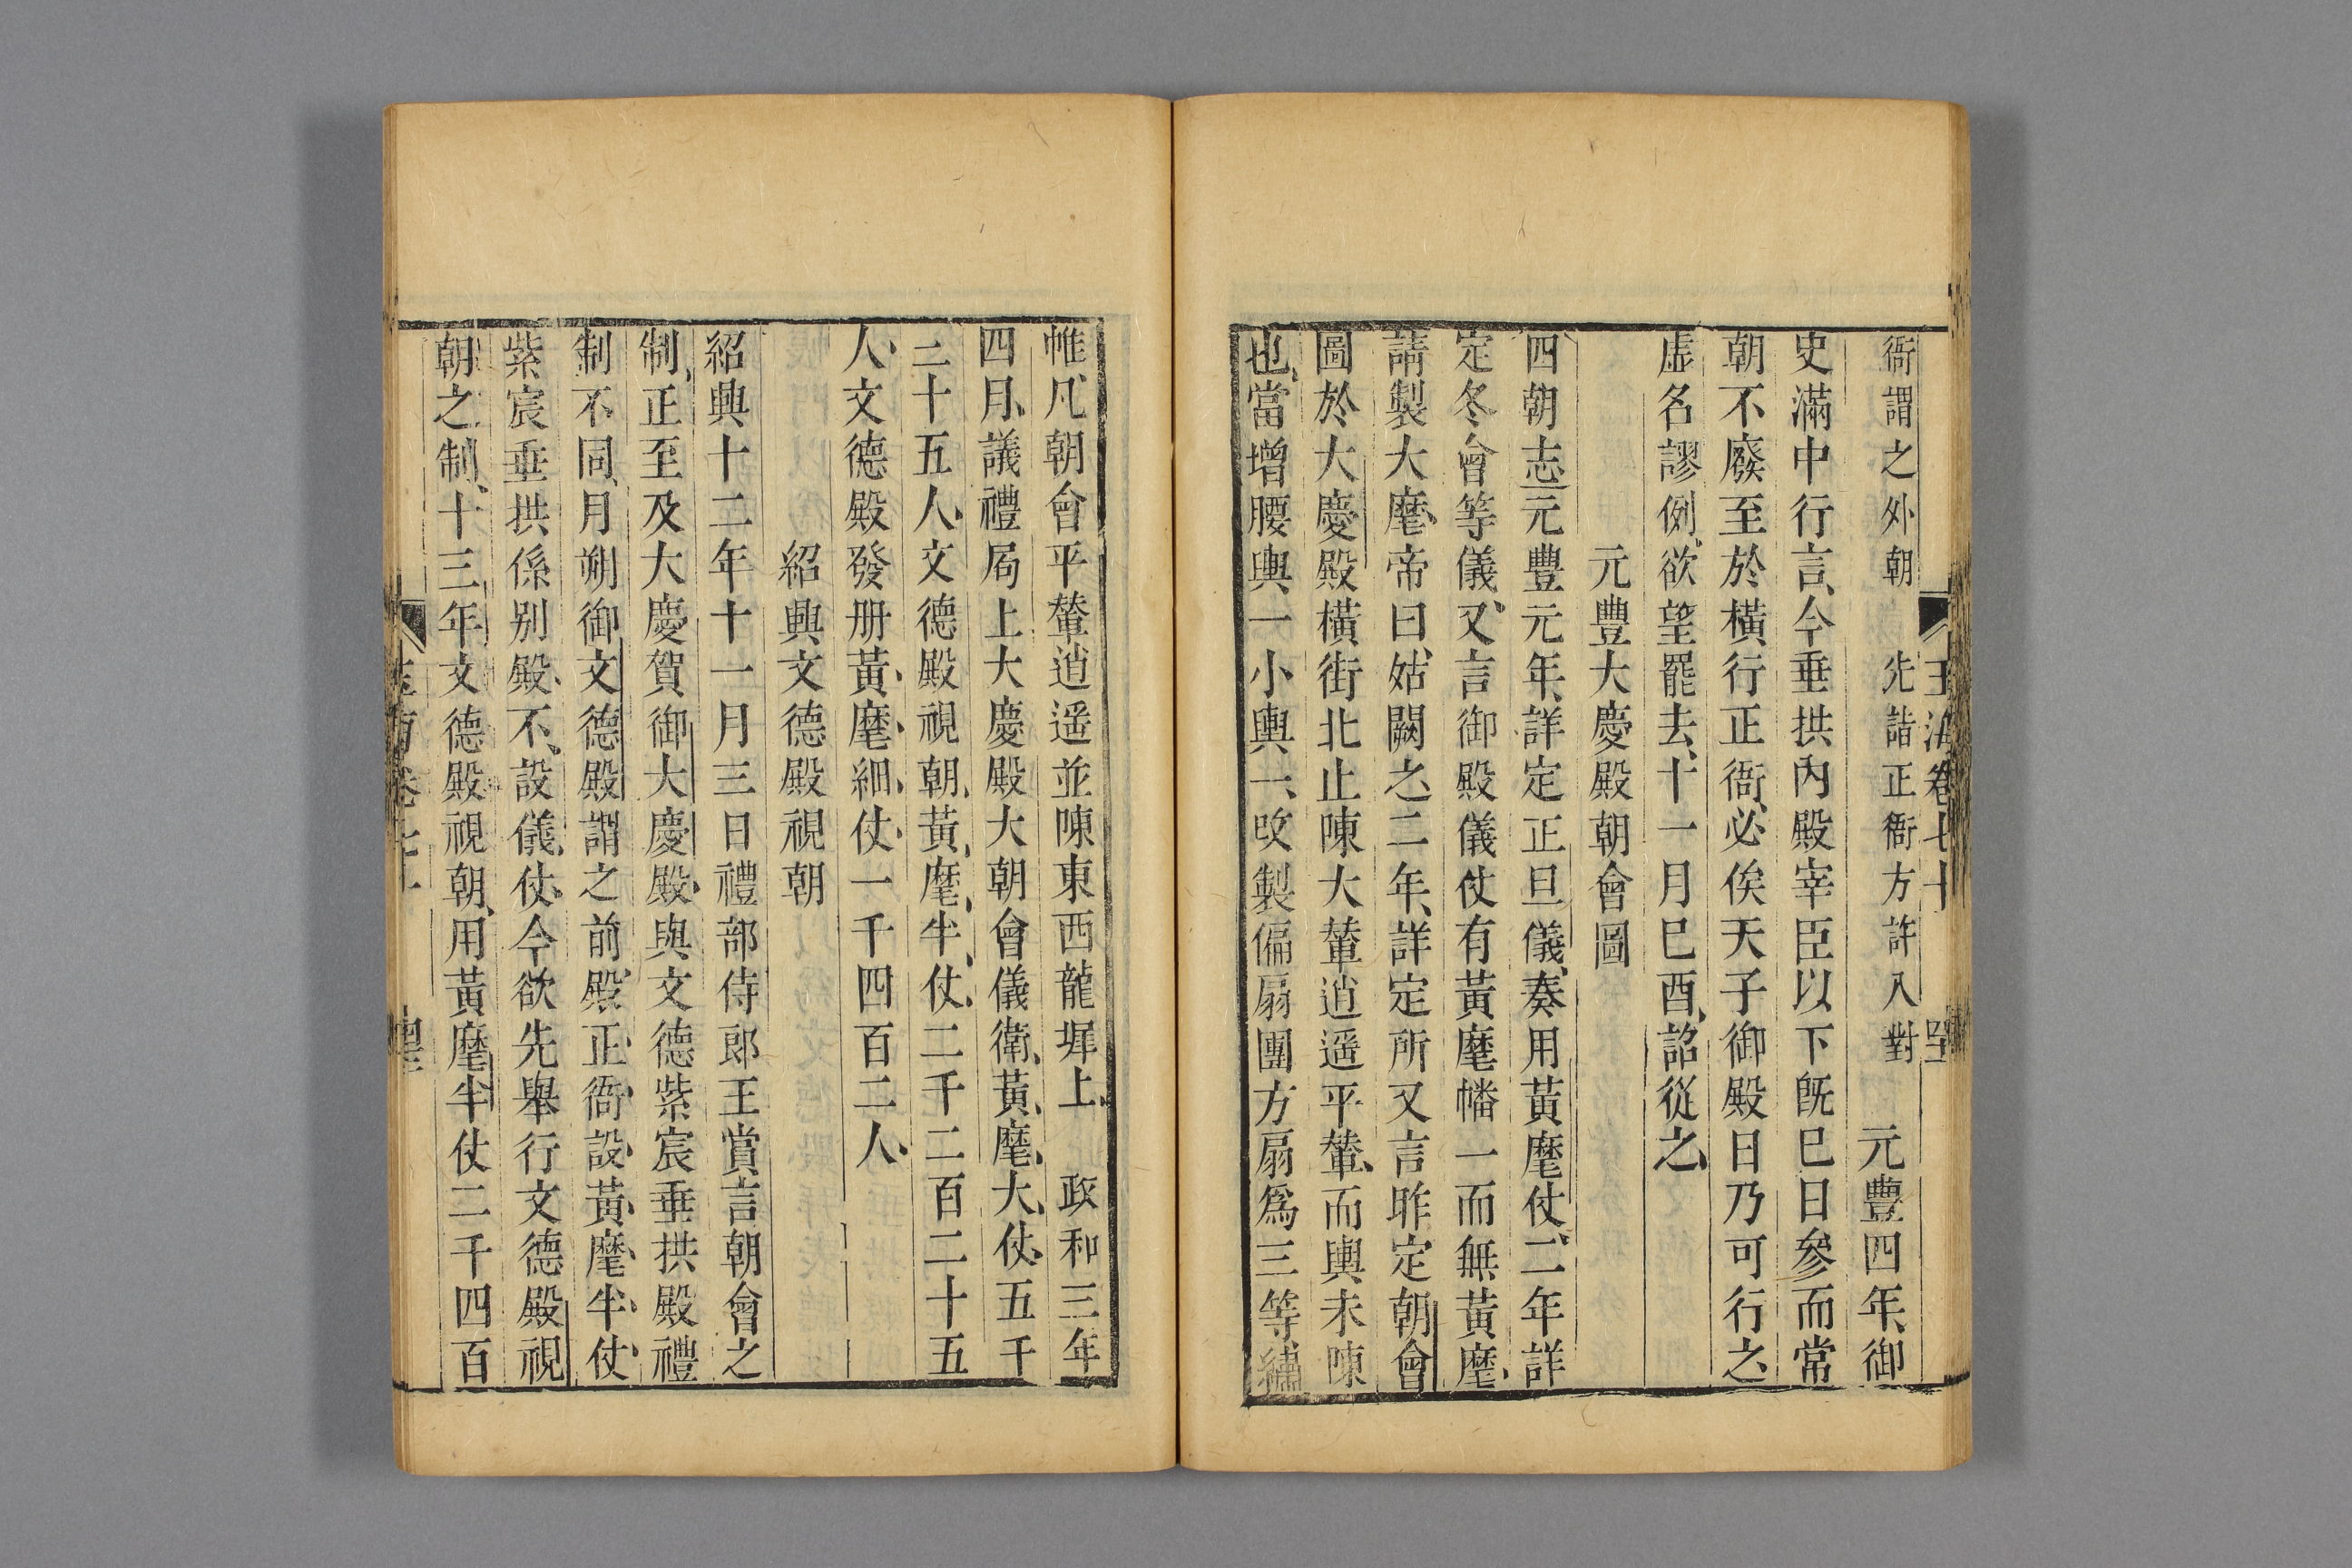 玉海卷七十
衙謂之外朝　先詣正衙方許入對　元豐四年御
史滿中行言今垂拱內殿宰臣以下旣巳日參而常
朝不廢至於橫行正衙必俟天子御殿日乃可行之
虛名謬例欲望罷去十一月巳酉詔從之
元豐大慶殿朝會圖
四朝志元豐元年詳定正旦儀奏用黃麾仗二年詳
定冬會等儀又言御殿儀仗有黃麾幡一而無黃麾
請製大麾帝曰姑闕之二年詳定所又言昨定朝會
圖於大慶殿橫街北止陳大輦逍遥平輦而輿未陳
也當增腰輿一小輿一攺製偏扇團方扇爲三等繡
帷凡朝會平輦逍遥並陳東西龍墀上　政和三年
四月議禮局上大慶殿大朝會儀衛黃麾大仗五千
二十五人文德殿視朝黃麾半仗二千二百二十五
人文德殿發册黃麾細仗一千四百二人
紹興文德殿視朝
紹興十二年十一月三日禮部侍郎王賞言朝會之
制正至及大慶賀御大慶殿與文德紫宸垂拱殿禮
制不同月朔御文德殿謂之前殿正衙設黃麾半仗
紫宸垂拱係别殿不設儀仗今欲先舉行文德殿視
朝之制十三年文德殿視朝用黃麾半仗二千四百